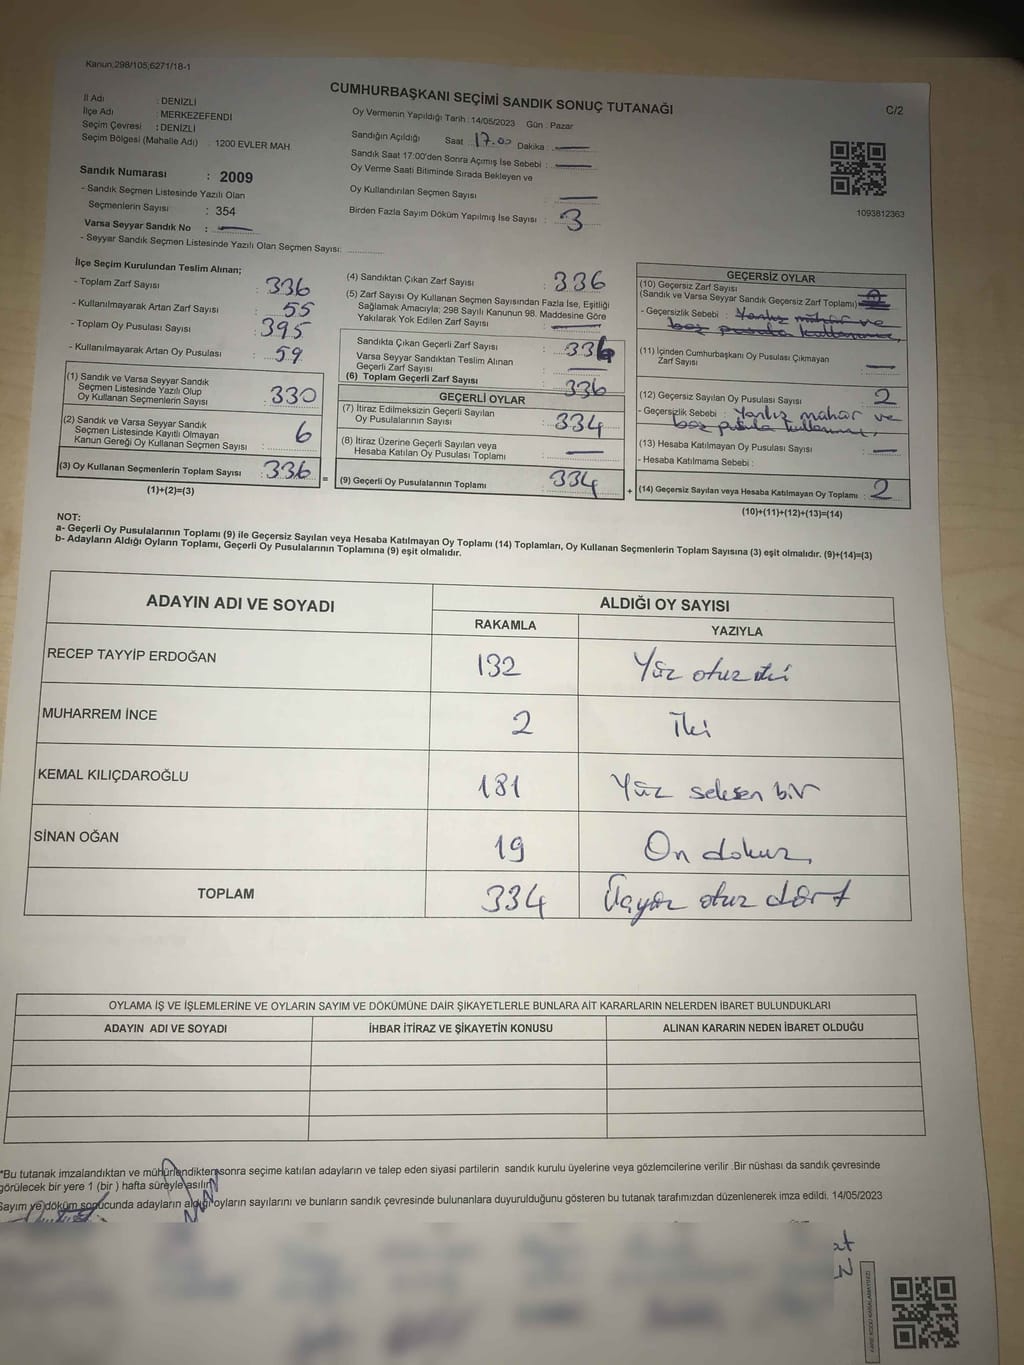 Kanun:298/105,6271/18-1
CUMHURBAŞKANI SEÇİMİ SANDIK SONUÇ TUTANAĞI
C/2
İl Adı : DENİZLİ
İlçe Adı : MERKEZEFENDİ
Seçim Çevresi : DENİZLİ
Seçim Bölgesi (Mahalle Adı) : 1200 EVLER MAH.
Oy Vermenin Yapıldığı Tarih : 14/05/2023 Gün : Pazar
Sandığın Açıldığı Saat : 17.00 Dakika : —
Sandık Saat 17:00'den Sonra Açımış İse Sebebi : —
Oy Verme Saati Bitiminde Sırada Bekleyen ve
Oy Kullandırılan Seçmen Sayısı : —
Birden Fazla Sayım Döküm Yapılmış İse Sayısı : 3
1093812363
Sandık Numarası : 2009
- Sandık Seçmen Listesinde Yazılı Olan
Seçmenlerin Sayısı : 354
Varsa Seyyar Sandık No : —
- Seyyar Sandık Seçmen Listesinde Yazılı Olan Seçmen Sayısı:
İlçe Seçim Kurulundan Teslim Alınan;
- Toplam Zarf Sayısı : 336
- Kullanılmayarak Artan Zarf Sayısı : 55
- Toplam Oy Pusulası Sayısı : 395
- Kullanılmayarak Artan Oy Pusulası : 59
(1) Sandık ve Varsa Seyyar Sandık
Seçmen Listesinde Yazılı Olup
Oy Kullanan Seçmenlerin Sayısı : 330
(2) Sandık ve Varsa Seyyar Sandık
Seçmen Listesinde Kayıtlı Olmayan
Kanun Gereği Oy Kullanan Seçmen Sayısı : 6
(3) Oy Kullanan Seçmenlerin Toplam Sayısı : 336
(1)+(2)=(3)
(4) Sandıktan Çıkan Zarf Sayısı : 336
(5) Zarf Sayısı Oy Kullanan Seçmen Sayısından Fazla İse, Eşitliği
Sağlamak Amacıyla; 298 Sayılı Kanunun 98. Maddesine Göre
Yakılarak Yok Edilen Zarf Sayısı : —
Sandıkta Çıkan Geçerli Zarf Sayısı : 336
Varsa Seyyar Sandıktan Teslim Alınan
Geçerli Zarf Sayısı : —
(6) Toplam Geçerli Zarf Sayısı : 336
GEÇERLİ OYLAR
(7) İtiraz Edilmeksizin Geçerli Sayılan
Oy Pusulalarının Sayısı : 334
(8) İtiraz Üzerine Geçerli Sayılan veya
Hesaba Katılan Oy Pusulası Toplamı : —
= (9) Geçerli Oy Pusulalarının Toplamı : 334
GEÇERSİZ OYLAR
(10) Geçersiz Zarf Sayısı
(Sandık ve Varsa Seyyar Sandık Geçersiz Zarf Toplamı) :
- Geçersizlik Sebebi : Yanlız mühür ve
boş pusula kullanımı,
(11) İçinden Cumhurbaşkanı Oy Pusulası Çıkmayan
Zarf Sayısı : —
(12) Geçersiz Sayılan Oy Pusulası Sayısı : 2
- Geçersizlik Sebebi : Yanlız mühür ve
boş pusula kullanımı,
(13) Hesaba Katılmayan Oy Pusulası Sayısı : —
- Hesaba Katılmama Sebebi :
+ (14) Geçersiz Sayılan veya Hesaba Katılmayan Oy Toplamı : 2
(10)+(11)+(12)+(13)=(14)
NOT:
a- Geçerli Oy Pusulalarının Toplamı (9) ile Geçersiz Sayılan veya Hesaba Katılmayan Oy Toplamı (14) Toplamları, Oy Kullanan Seçmenlerin Toplam Sayısına (3) eşit olmalıdır. (9)+(14)=(3)
b- Adayların Aldığı Oyların Toplamı, Geçerli Oy Pusulalarının Toplamına (9) eşit olmalıdır.
ADAYIN ADI VE SOYADI ALDIĞI OY SAYISI
RAKAMLA YAZIYLA
RECEP TAYYİP ERDOĞAN 132 Yüz otuz iki
MUHARREM İNCE 2 İki
KEMAL KILIÇDAROĞLU 181 Yüz seksen bir
SİNAN OĞAN 19 On dokuz,
TOPLAM 334 Üçyüz otuz dört
OYLAMA İŞ VE İŞLEMLERİNE VE OYLARIN SAYIM VE DÖKÜMÜNE DAİR ŞİKAYETLERLE BUNLARA AİT KARARLARIN NELERDEN İBARET BULUNDUKLARI
ADAYIN ADI VE SOYADI İHBAR İTİRAZ VE ŞİKAYETİN KONUSU ALINAN KARARIN NEDEN İBARET OLDUĞU
*Bu tutanak imzalandıktan ve mühürlendikten sonra seçime katılan adayların ve talep eden siyasi partilerin sandık kurulu üyelerine veya gözlemcilerine verilir .Bir nüshası da sandık çevresinde
görülecek bir yere 1 (bir ) hafta süreyle asılır.
Sayım ve döküm sonucunda adayların aldığı oyların sayılarını ve bunların sandık çevresinde bulunanlara duyurulduğunu gösteren bu tutanak tarafımızdan düzenlenerek imza edildi. 14/05/2023